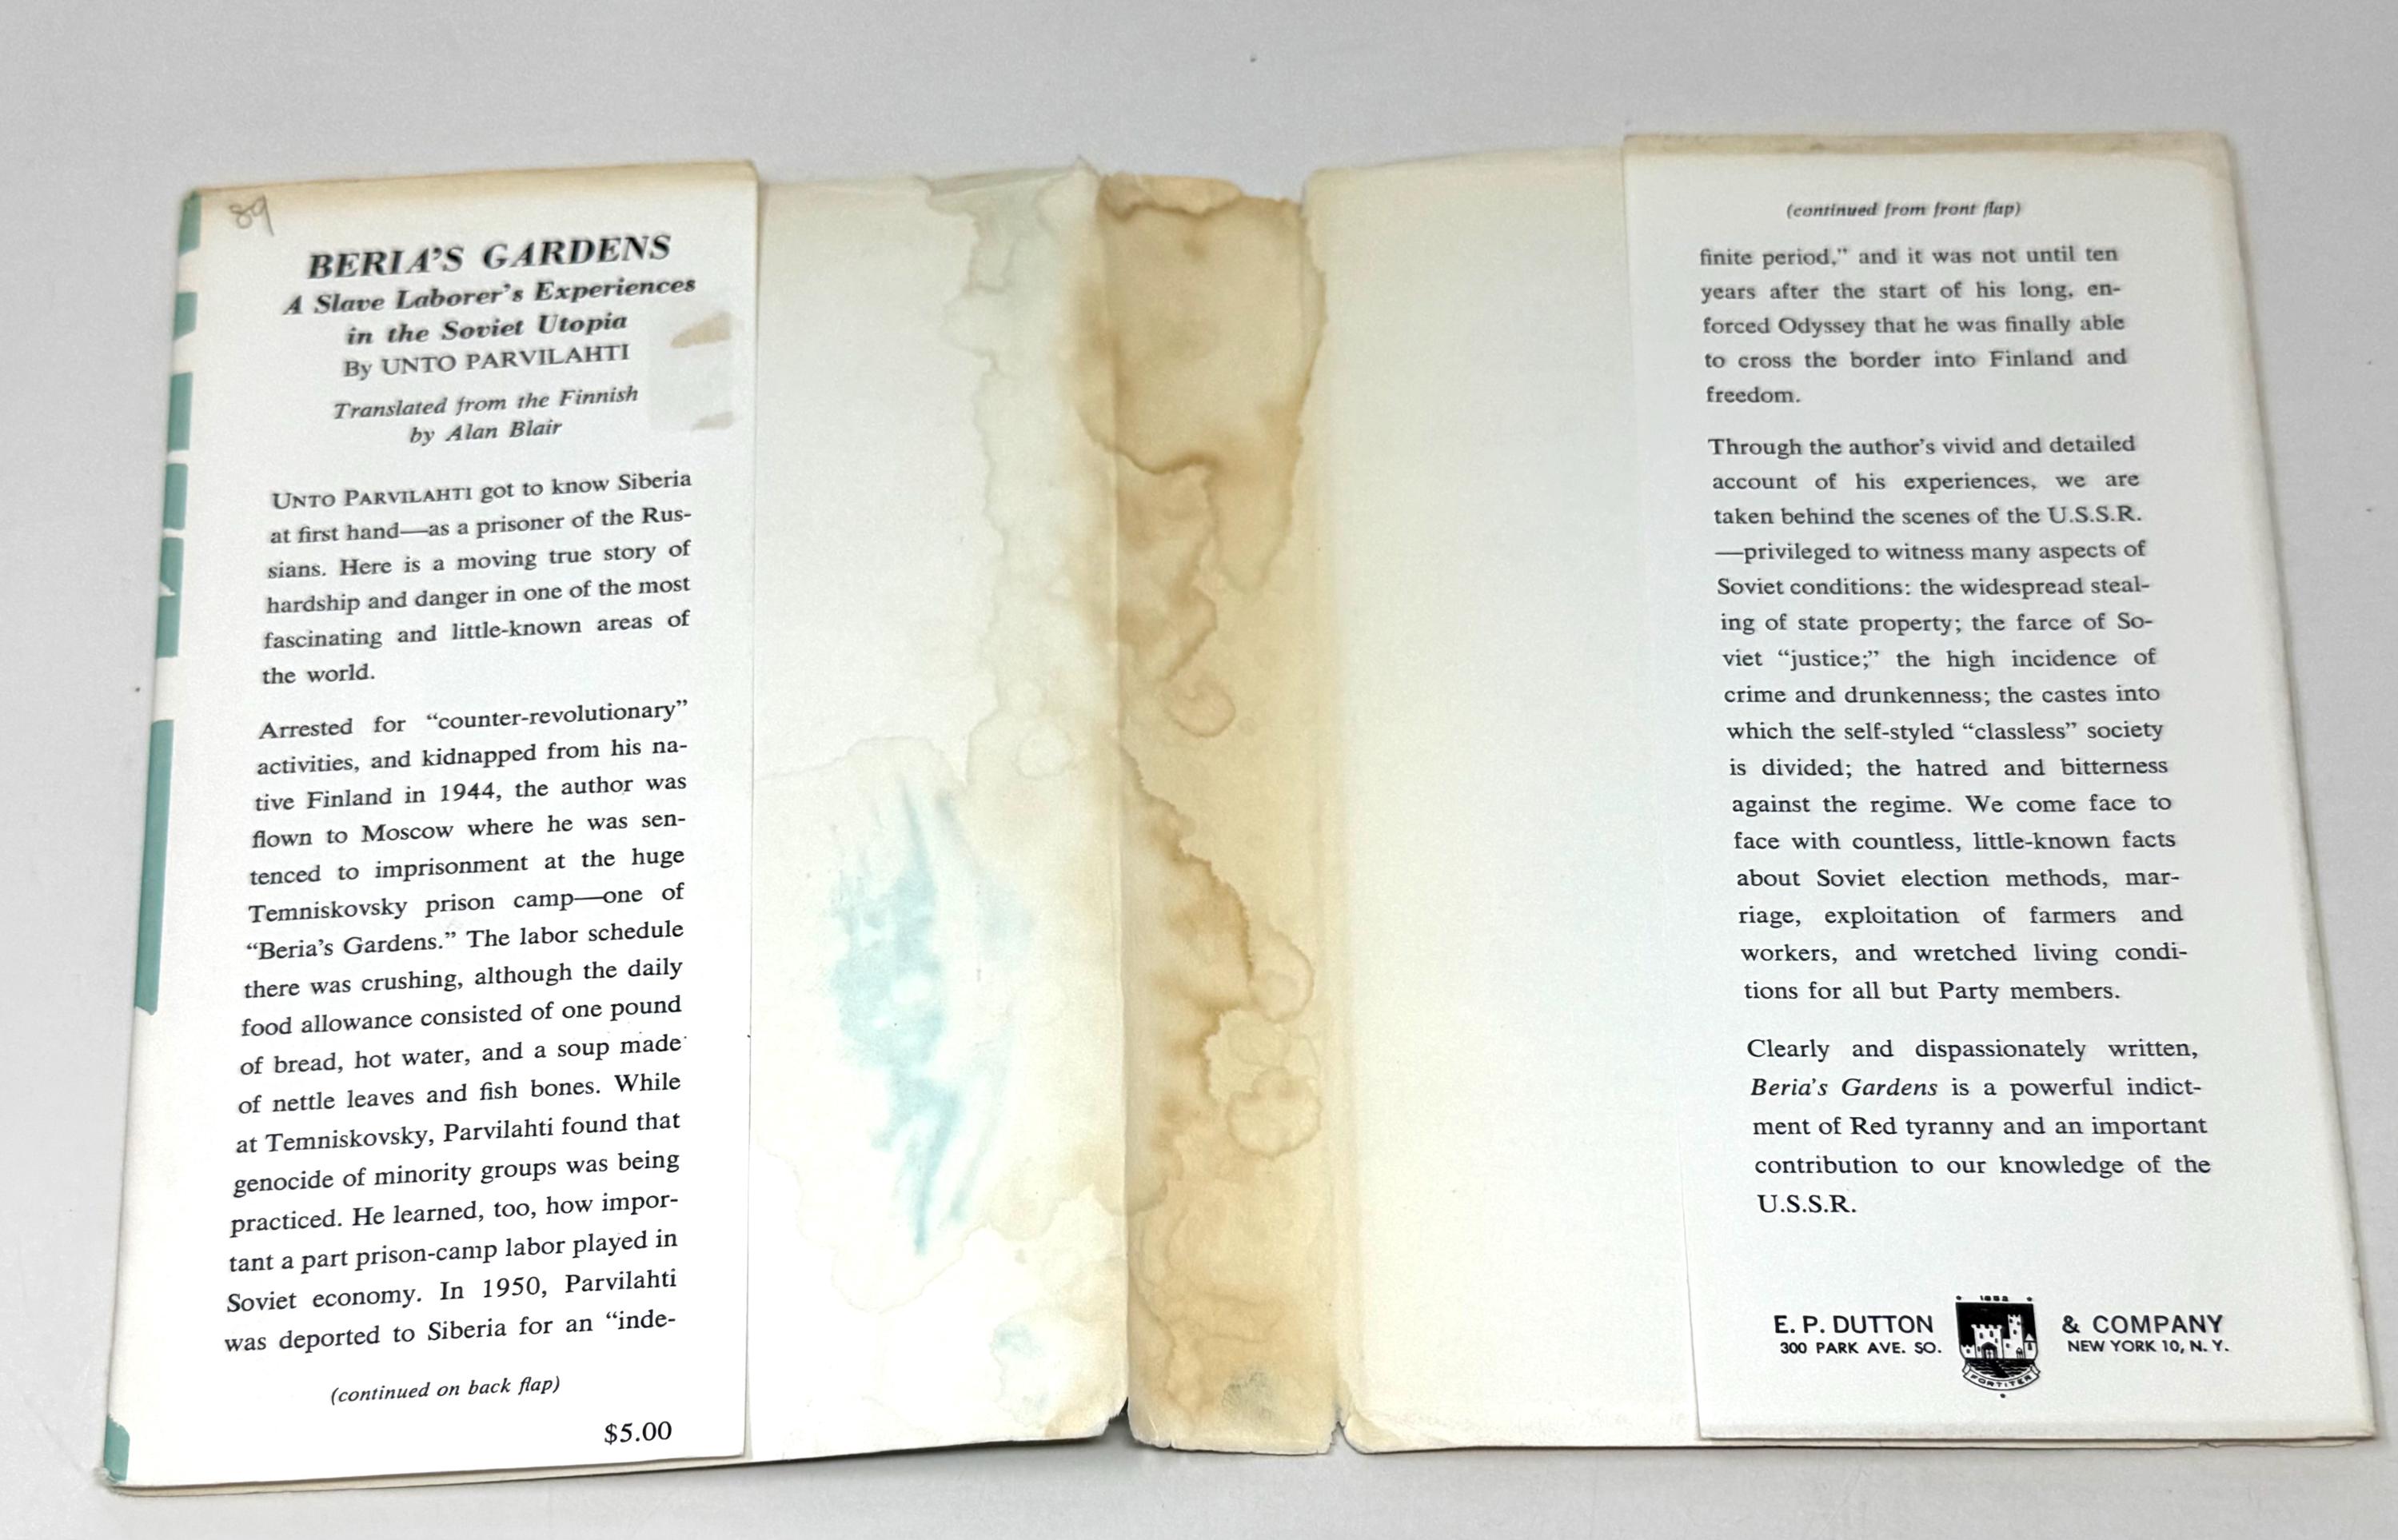 89
BERIA’S GARDENS
A Slave Laborer’s Experiences
in the Soviet Utopia
By UNTO PARVILAHTI
Translated from the Finnish
by Alan Blair
UNTO PARVILAHTI got to know Siberia
at first hand—as a prisoner of the Rus-
sians. Here is a moving true story of
hardship and danger in one of the most
fascinating and little-known areas of
the world.
Arrested for “counter-revolutionary”
activities, and kidnapped from his na-
tive Finland in 1944, the author was
flown to Moscow where he was sen-
tenced to imprisonment at the huge
Temniskovsky prison camp—one of
“Beria’s Gardens.” The labor schedule
there was crushing, although the daily
food allowance consisted of one pound
of bread, hot water, and a soup made
of nettle leaves and fish bones. While
at Temniskovsky, Parvilahti found that
genocide of minority groups was being
practiced. He learned, too, how impor-
tant a part prison-camp labor played in
Soviet economy. In 1950, Parvilahti
was deported to Siberia for an “inde-
(continued on back flap)
$5.00
(continued from front flap)
finite period,” and it was not until ten
years after the start of his long, en-
forced Odyssey that he was finally able
to cross the border into Finland and
freedom.
Through the author’s vivid and detailed
account of his experiences, we are
taken behind the scenes of the U.S.S.R.
—privileged to witness many aspects of
Soviet conditions: the widespread steal-
ing of state property; the farce of So-
viet “justice;” the high incidence of
crime and drunkenness; the castes into
which the self-styled “classless” society
is divided; the hatred and bitterness
against the regime. We come face to
face with countless, little-known facts
about Soviet election methods, mar-
riage, exploitation of farmers and
workers, and wretched living condi-
tions for all but Party members.
Clearly and dispassionately written,
Beria’s Gardens is a powerful indict-
ment of Red tyranny and an important
contribution to our knowledge of the
U.S.S.R.
E. P. DUTTON & COMPANY
300 PARK AVE. SO. NEW YORK 10, N. Y.
1852
FORTITER